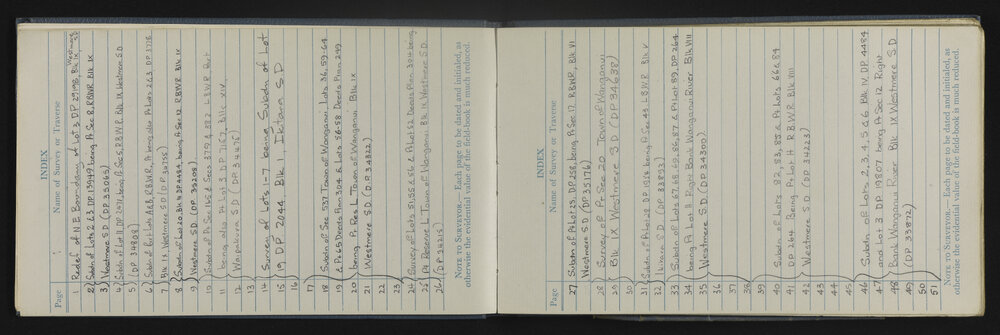 INDEX
Page Name of Survey or Traverse
1 Redef of N.E. Boundary of Lot 3 DP 29198, Blk IX Westmere S.D
2 Subdn of Lots 2 & 3 DP 15949, being Pt Sec 8, RBWR, Blk IX
3 Westmere S.D (DP 35065)
4 Subdn of Lot 11 DP 2071, being Pt Sec 5, R.B.W.R. Blk IX Westmere S.D
5 (DP 34808)
6 Subdn of Pt Lots A & B, R.B.W.R,
7 Blk IX Westmere S.D (DP 30755)
8
9 Westmere S.D. (DP 35208)
10 Subdn of Pt Sec 162 & Secs 379 & 382 L.B.W.R. Pur
11 being also Pt Lot 3 D.P 7167, Blk XIV,
12 Waipakura S.D (DP 34476)
13
14 Survey of Lots 1-7 being Subdn of Lot
15 19 DP 2044 Blk II Ikitara S D
16
17
18 Subdn of Sec 537 Town of Wanganui, Lots 36, 59-64
19 & Pt 65 Deeds Plan 304 & Lots 56-58 Deeds Plan 249
20 being Pt Res L Town of Wanganui Blk IX
21 Westmere S.D. (D.P 34322)
22
23
24 Survey of Lots 51, 55 & 56 & Pt Lot 52 Deeds Plan 304 being
25 Pt Reserve L Town of Wanganui Blk IX Westmere S.D.
26 (DP 34215)
NOTE TO SURVEYOR.—Each page to be dated and initialed, as
otherwise the evidential value of the field-book is much reduced.
INDEX
Page Name of Survey or Traverse
27 Subdn of Pt Lot 25, DP 256, being Pt Sec 17 RBWR, Blk VI
Westmere S.D (DP 35176)
28 Survey of Pt Sec 20 Town of Wanganui
29 Blk IX Westmere S.D (DP 34638)
30
31 Subdn of Pt Lot 20 being Pt Sec 43 L.B.W.R Blk V
32 S.D (DP 33893)
33 Subdn of Lots 67, 68, 80, 86, 87 & Pt Lot 89, DP. 264
34 being Pt Lot H Right Bank Wanganui River Blk VIII
35 Westmere S.D. (DP 34300)
36
37
38
39
40 Subdn of Lots 82, 83, 85 & Pt Lots 66 & 84
41 DP 264 Being Pt Lot H R.B.W.R Blk VIII
42 Westmere S.D. (DP 34223)
43
44
45
46 Subdn of Lots 2, 3, 4, 5 & 6 Blk IV, DP 4484
47 and Lot 3 DP 19807 being Pt Sec 12 Right
48 Bank Wanganui River Blk IX Westmere S D
49 (DP 33872)
50
51
NOTE TO SURVEYOR.—Each page to be dated and initialed, as
otherwise the evidential value of the field-book is much reduced.